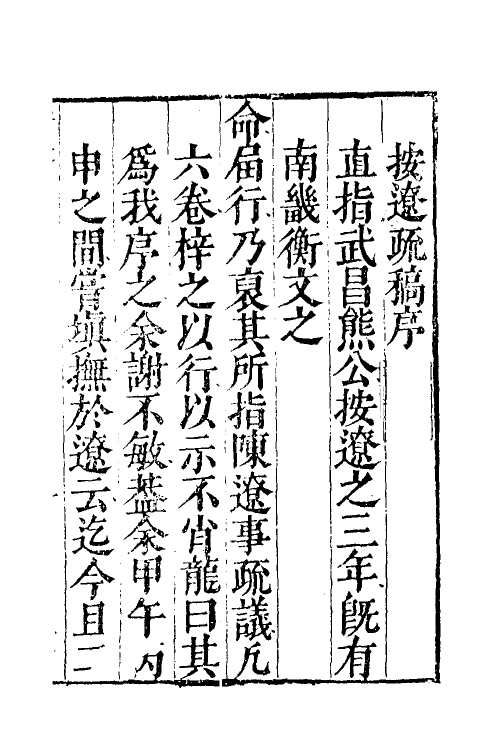 按遼疏稿序
直指武昌熊公按遼之三年既有
南畿衡文之
命届行乃裒其所指陳遼事疏議凡
六卷梓之以行以示不肖龍曰其
爲我序之余謝不敏葢余甲午丙
申之間嘗塡撫於遼云迄今且二